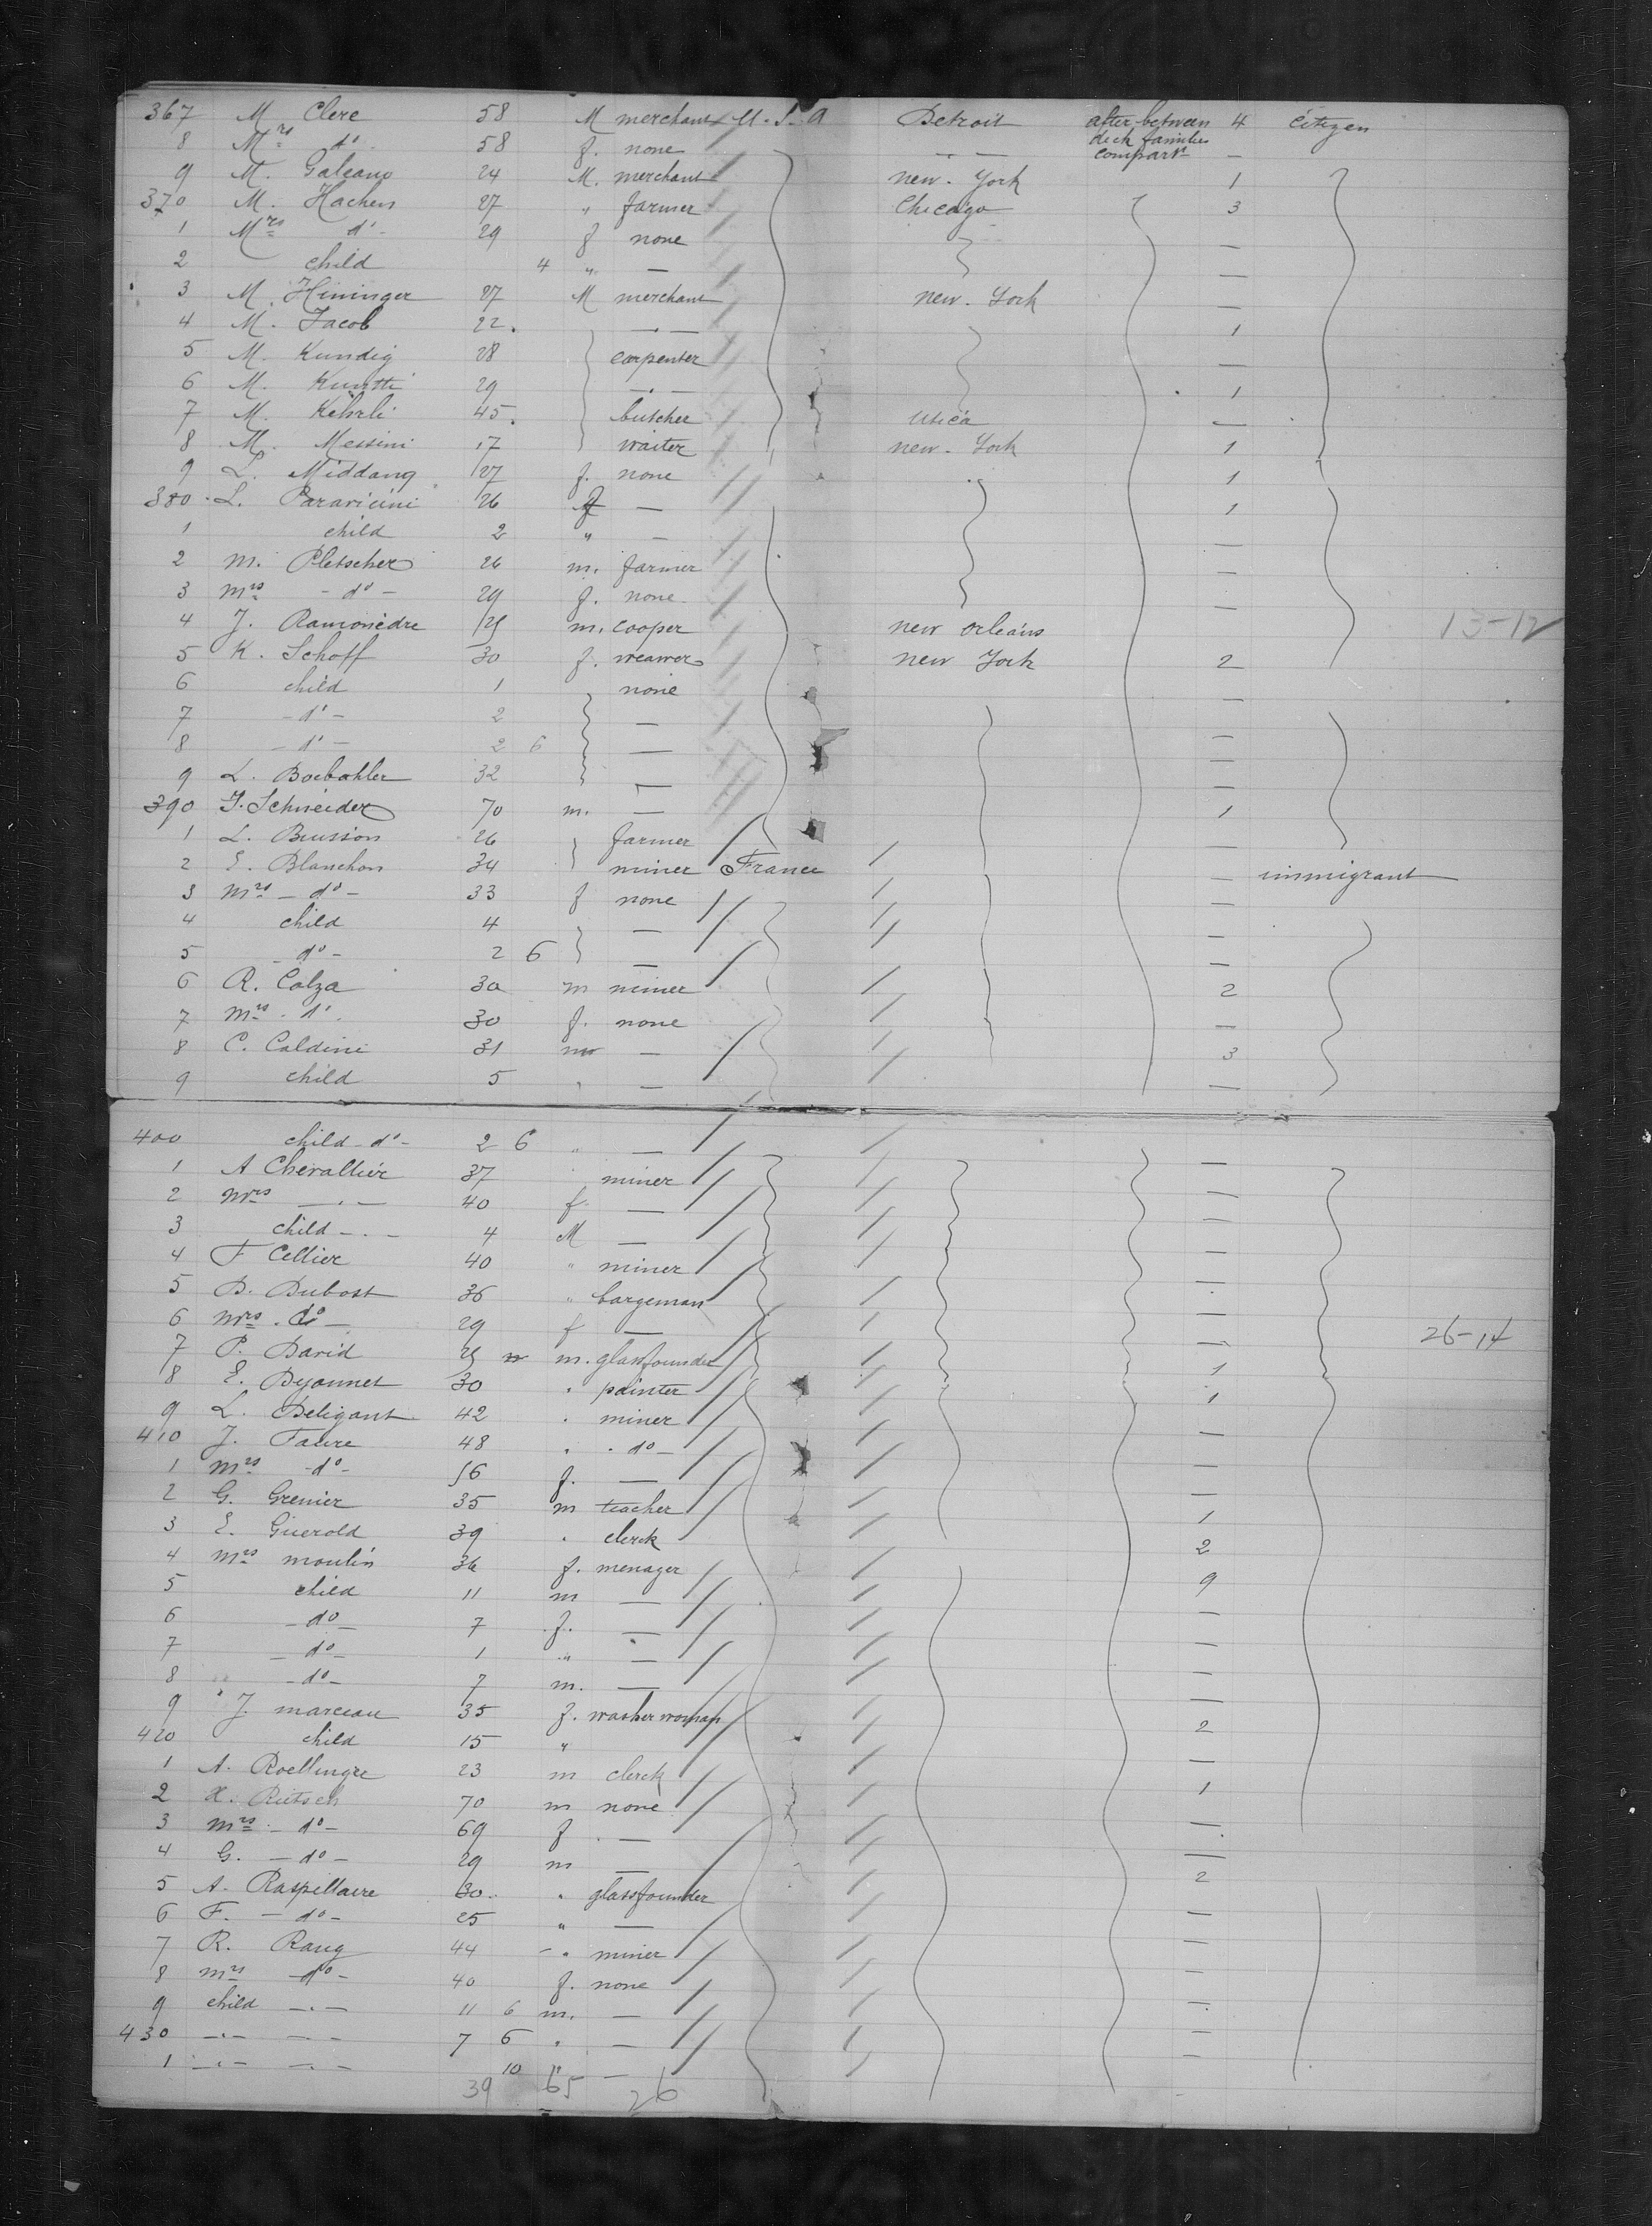 367 M Clerc 58 M merchant U.S.A Detroit after between 4 citizen
deck families
8 Mrs do 58 f. none — — compart —
9 M. Galeano 24 M. merchant new. York 1
370 M. Hachen 27 " farmer Chicago 3
1 Mrs do - 29 f none —
2 child 4 " — —
3 M. Hininger 27 M merchant new. York —
4 M. Jacob 22. —.— 1
5 M. Kundig 28 carpenter —
6 M. Kuntti 29 —.— 1
7 M. Kehrli 45. butcher Utica —
8 M. Messini 17 waiter new. York 1
9 L. Middang 27 f. none 1
380 L. Pararicini 26 f — 1
1 child 2 " — —
2 m. Pletscher 26 m. farmer —
3 mrs - do - 29 f. none —
4 J. Ramonèdre 25 m. cooper new orleans
13-12
5 K. Schoff 30 f. weawer new York 2
6 child 1 none —
7 - do - 2 — —
8 - do - 2 6 — —
9 L. Boebahler 32 — —
390 J. Schneider 70 m. — 1
1 L. Brusson 26 farmer —
2 E. Blanchon 34 miner France — immigrant
3 mrs - do - 33 f none —
4 child 4 — —
5 - do - 2 6 — —
6 R. Calza 30 m mimer 2
7 mrs . do . 30 f. none —
8 C. Caldini 31 m — 3
9 child 5 " — —
400 child - do - 2 6 " — —
1 A Chevallier 37 miner —
2 mrs —.— 40 f. — —
3 child -.- 4 M — —
4 F Cellier 40 " miner —
5 D. Dubost 36 " bargeman —
6 mrs . do — 29 f — —
26-14
7 P. David 25 m. glassfounder 1
8 E. Dejonnes 30 " painter 1
9 L. Deligant 42 " miner —
410 J. Faure 48 " . do - —
1 mrs - do - 56 f. — —
2 G. Grenier 35 m teacher 1
3 E. Guerold 39 " clerck 2
4 mrs moulin 36 f. menager 9
5 child 11 m — —
6 - do - 7 f. — —
7 - do - 1 " — —
8 - do - 7 m. — —
9 J. marceau 35 f. washerwoman 2
420 child 15 " —
1 A. Roellingre 23 m clerck 1
2 X. Rietsch 70 m none —
3 mrs - do - 69 f — —
4 G. - do - 29 m — 2
5 A. Raspillaire 30. " glassfounder —
6 F. - do - 25 " — —
7 R. Raug 44 - " miner —
8 mrs - do - 40 f. none —
9 child —.— 11 6 m. — —
430 —.— —.— 7 6 " — —
1 —.— —.— 10 " —
39 65 26